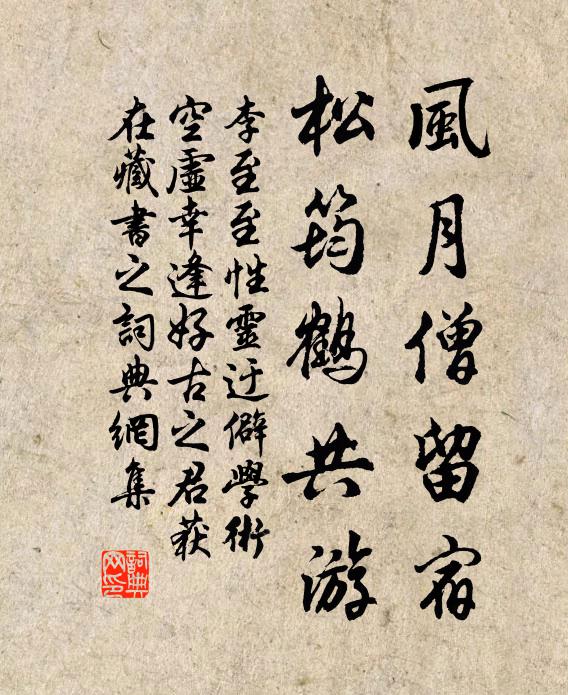 風月僧留宿
松筠鶴共游
李至至性靈迂僻學術
空虛幸逢好古之君獲
在藏書之詞典網集
詞典
網印